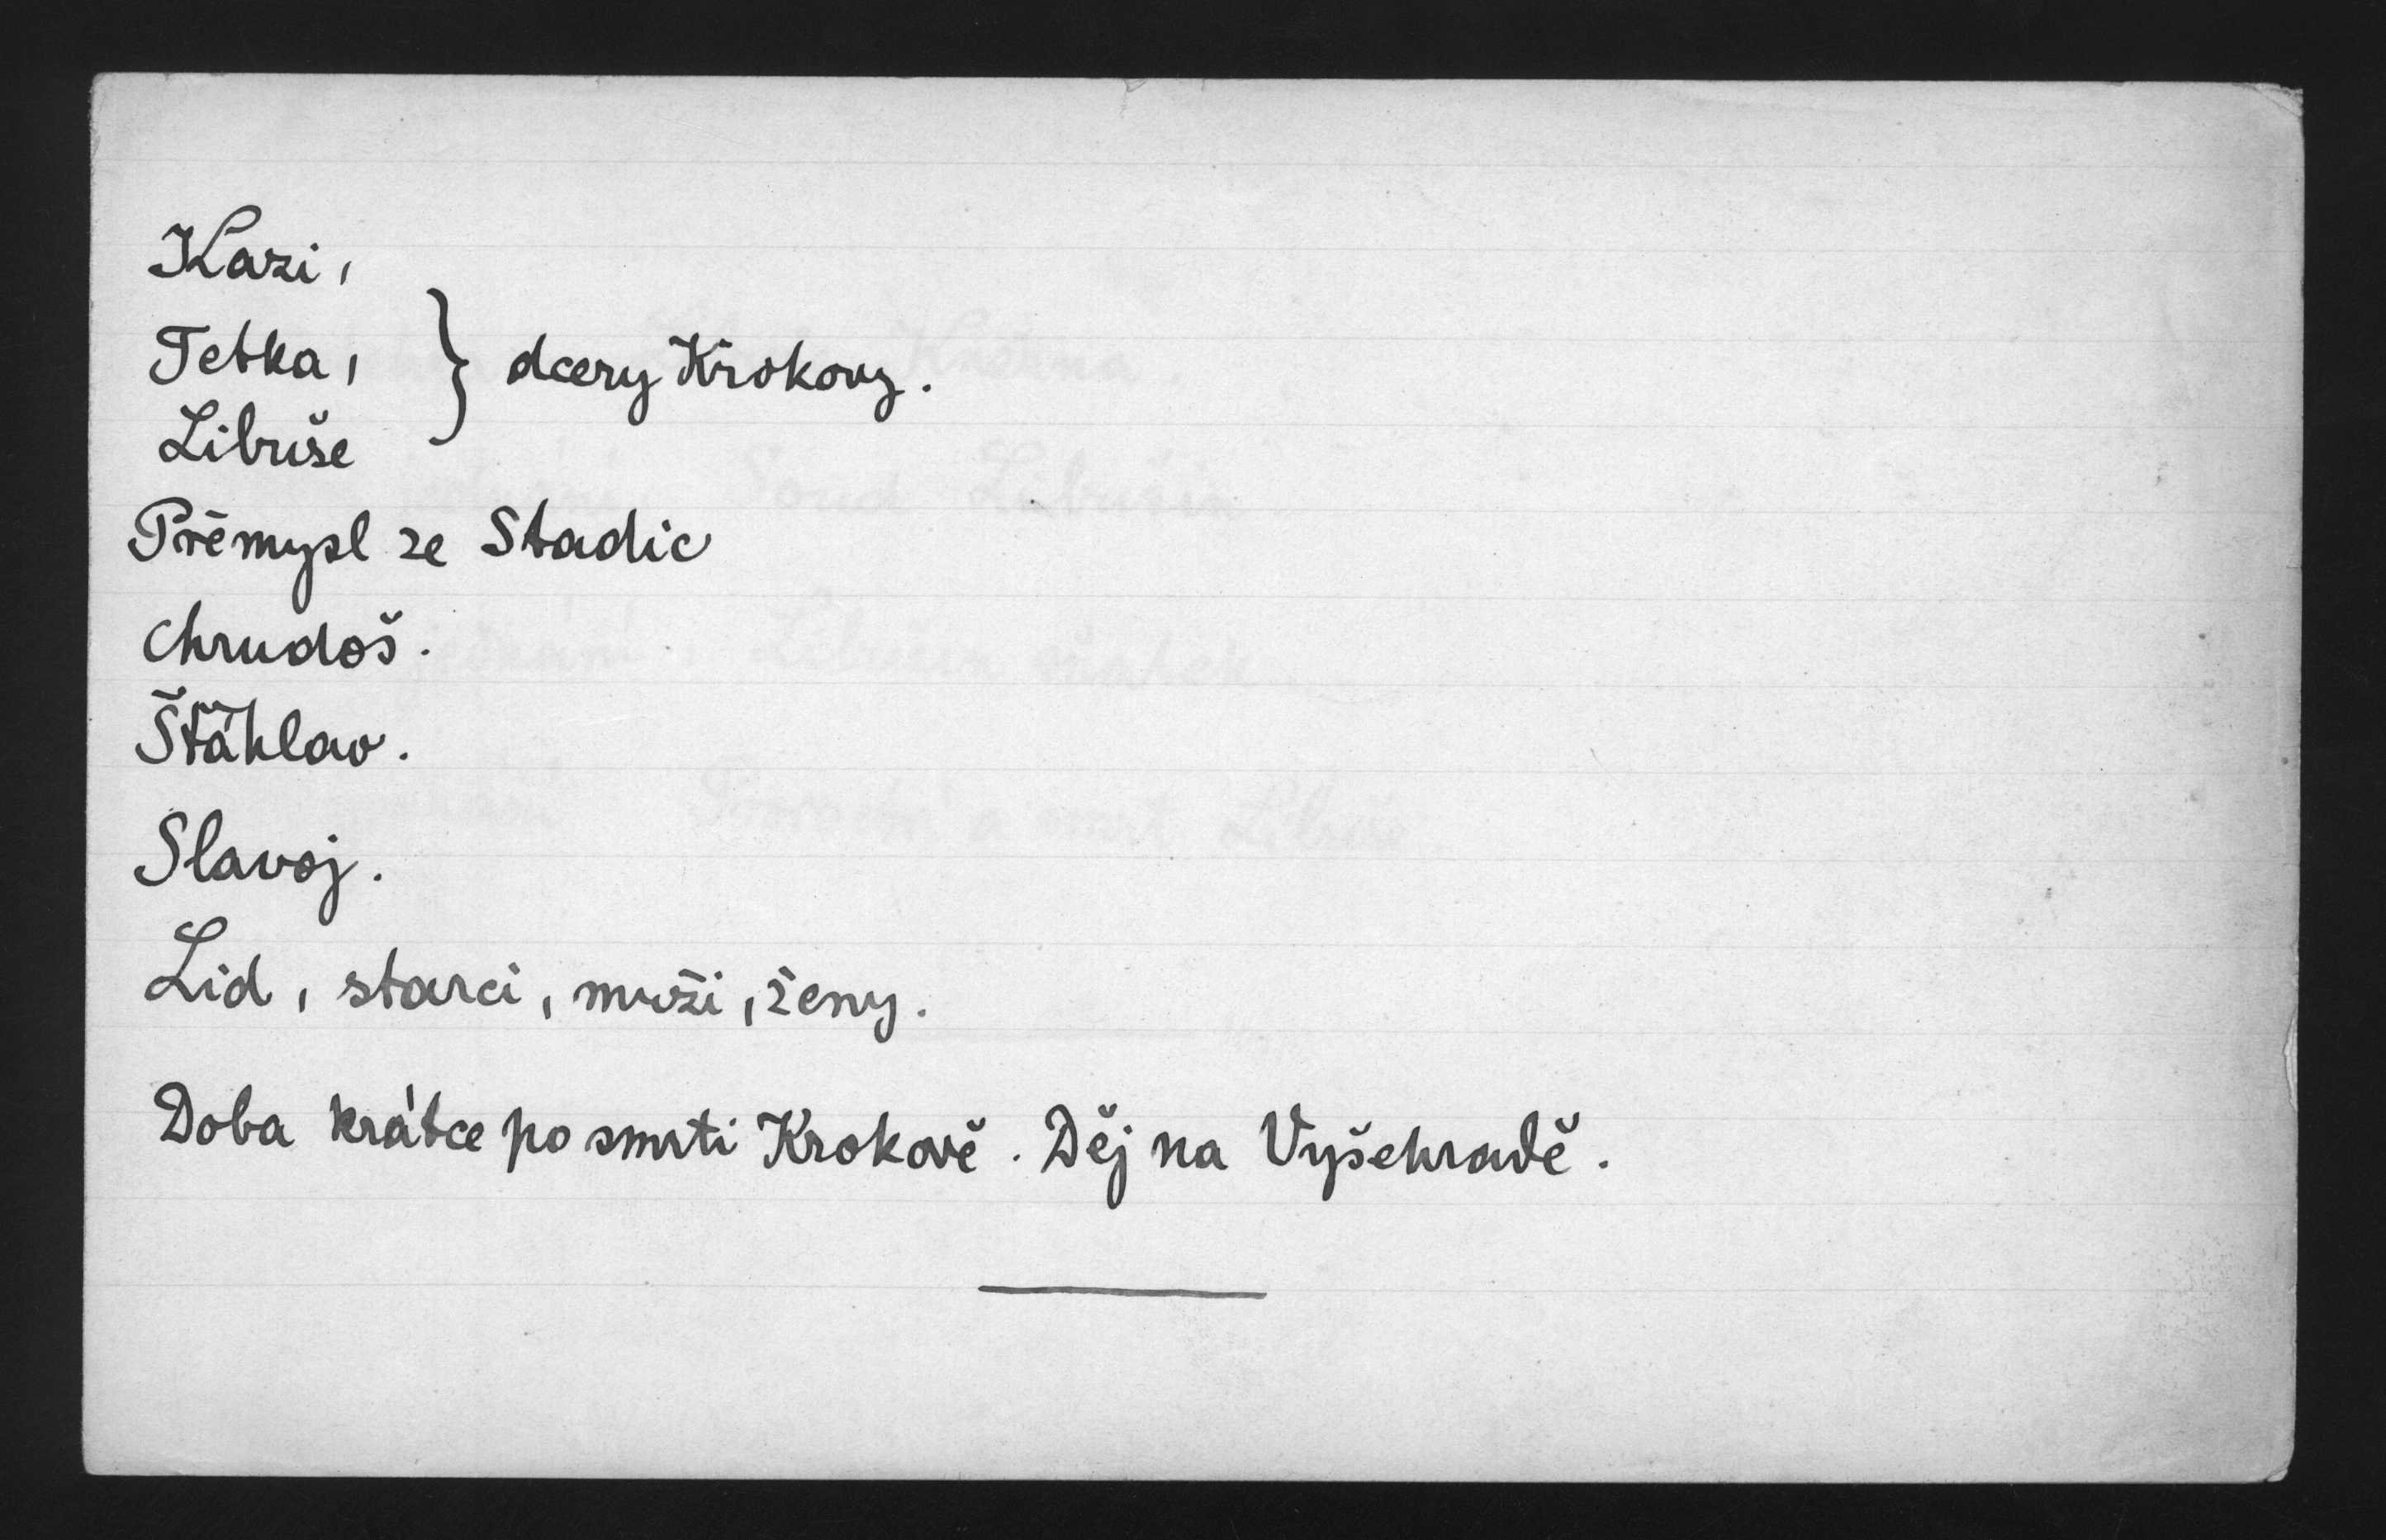 Kazi,
Tetka, } dcery Krokovy.
Libuše
Přemysl ze Stadic
Chrudoš.
Šťáhlav.
Slavoj.
Lid, starci, muži, ženy.
Doba krátce po smrti Krokově. Děj na Vyšehradě.